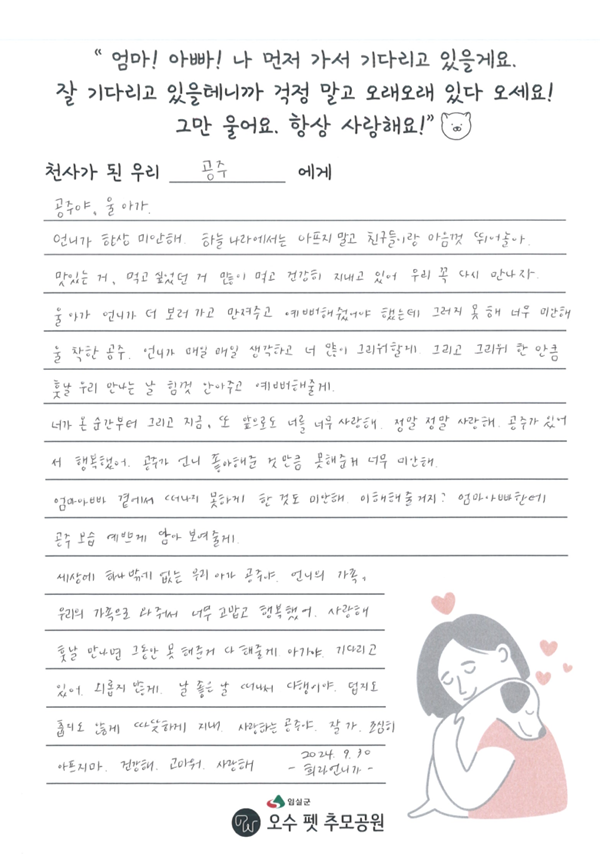 “ 엄마! 아빠! 나 먼저 가서 기다리고 있을게요.
잘 기다리고 있을테니까 걱정 말고 오래오래 있다 오세요!
그만 울어요. 항상 사랑해요!”
천사가 된 우리 공주 에게
공주야, 울 아가.
언니가 항상 미안해. 하늘나라에서는 아프지말고 친구들이랑 마음껏 뛰어놀아.
맛있는 거, 먹고 싶었던 거 많이 먹고 건강히 지내고 있어 우리 꼭 다시 만나자.
울 아가 언니가 더 보러가고 만져주고 예뻐해줬어야 했는데 그러지 못 해 너무 미안해
울 착한 공주. 언니가 매일 매일 생각하고 너 많이 그리워할게 그리고 그리워 한 만큼
훗날 우리 만나는 날 힘껏 안아주고 예뻐해줄게.
너가 온 순간부터 그리고 지금, 또 앞으로도 너를 너무 사랑해. 정말 정말 사랑해. 공주가 있어
서 행복했어. 공주가 언니 좋아해준 것만큼 못해줘서 너무 미안해.
엄마아빠 곁에서 떠나지 못하게 한 것도 미안해 이해해줄거지? 엄마아빠한테
공주 모습 예쁘게 담아 보여줄게.
세상에 하나밖에 없는 우리 아가 공주야. 언니의 가족,
우리의 가족으로 와줘서 너무 고맙고 행복했어. 사랑해
훗날 만나면 그동안 못해준거 다 해줄게 아가야. 기다리고
있어. 외롭지 않게. 날 좋은 날 떠나서 다행이야. 덥지도
춥지도 않게 따뜻하게 지내. 사랑하는 공주야. 잘 가. 조심히
아프지마. 건강해. 고마워. 사랑해
2024. 9. 30
- 희라언니가 -
임실군
오수 펫 추모공원